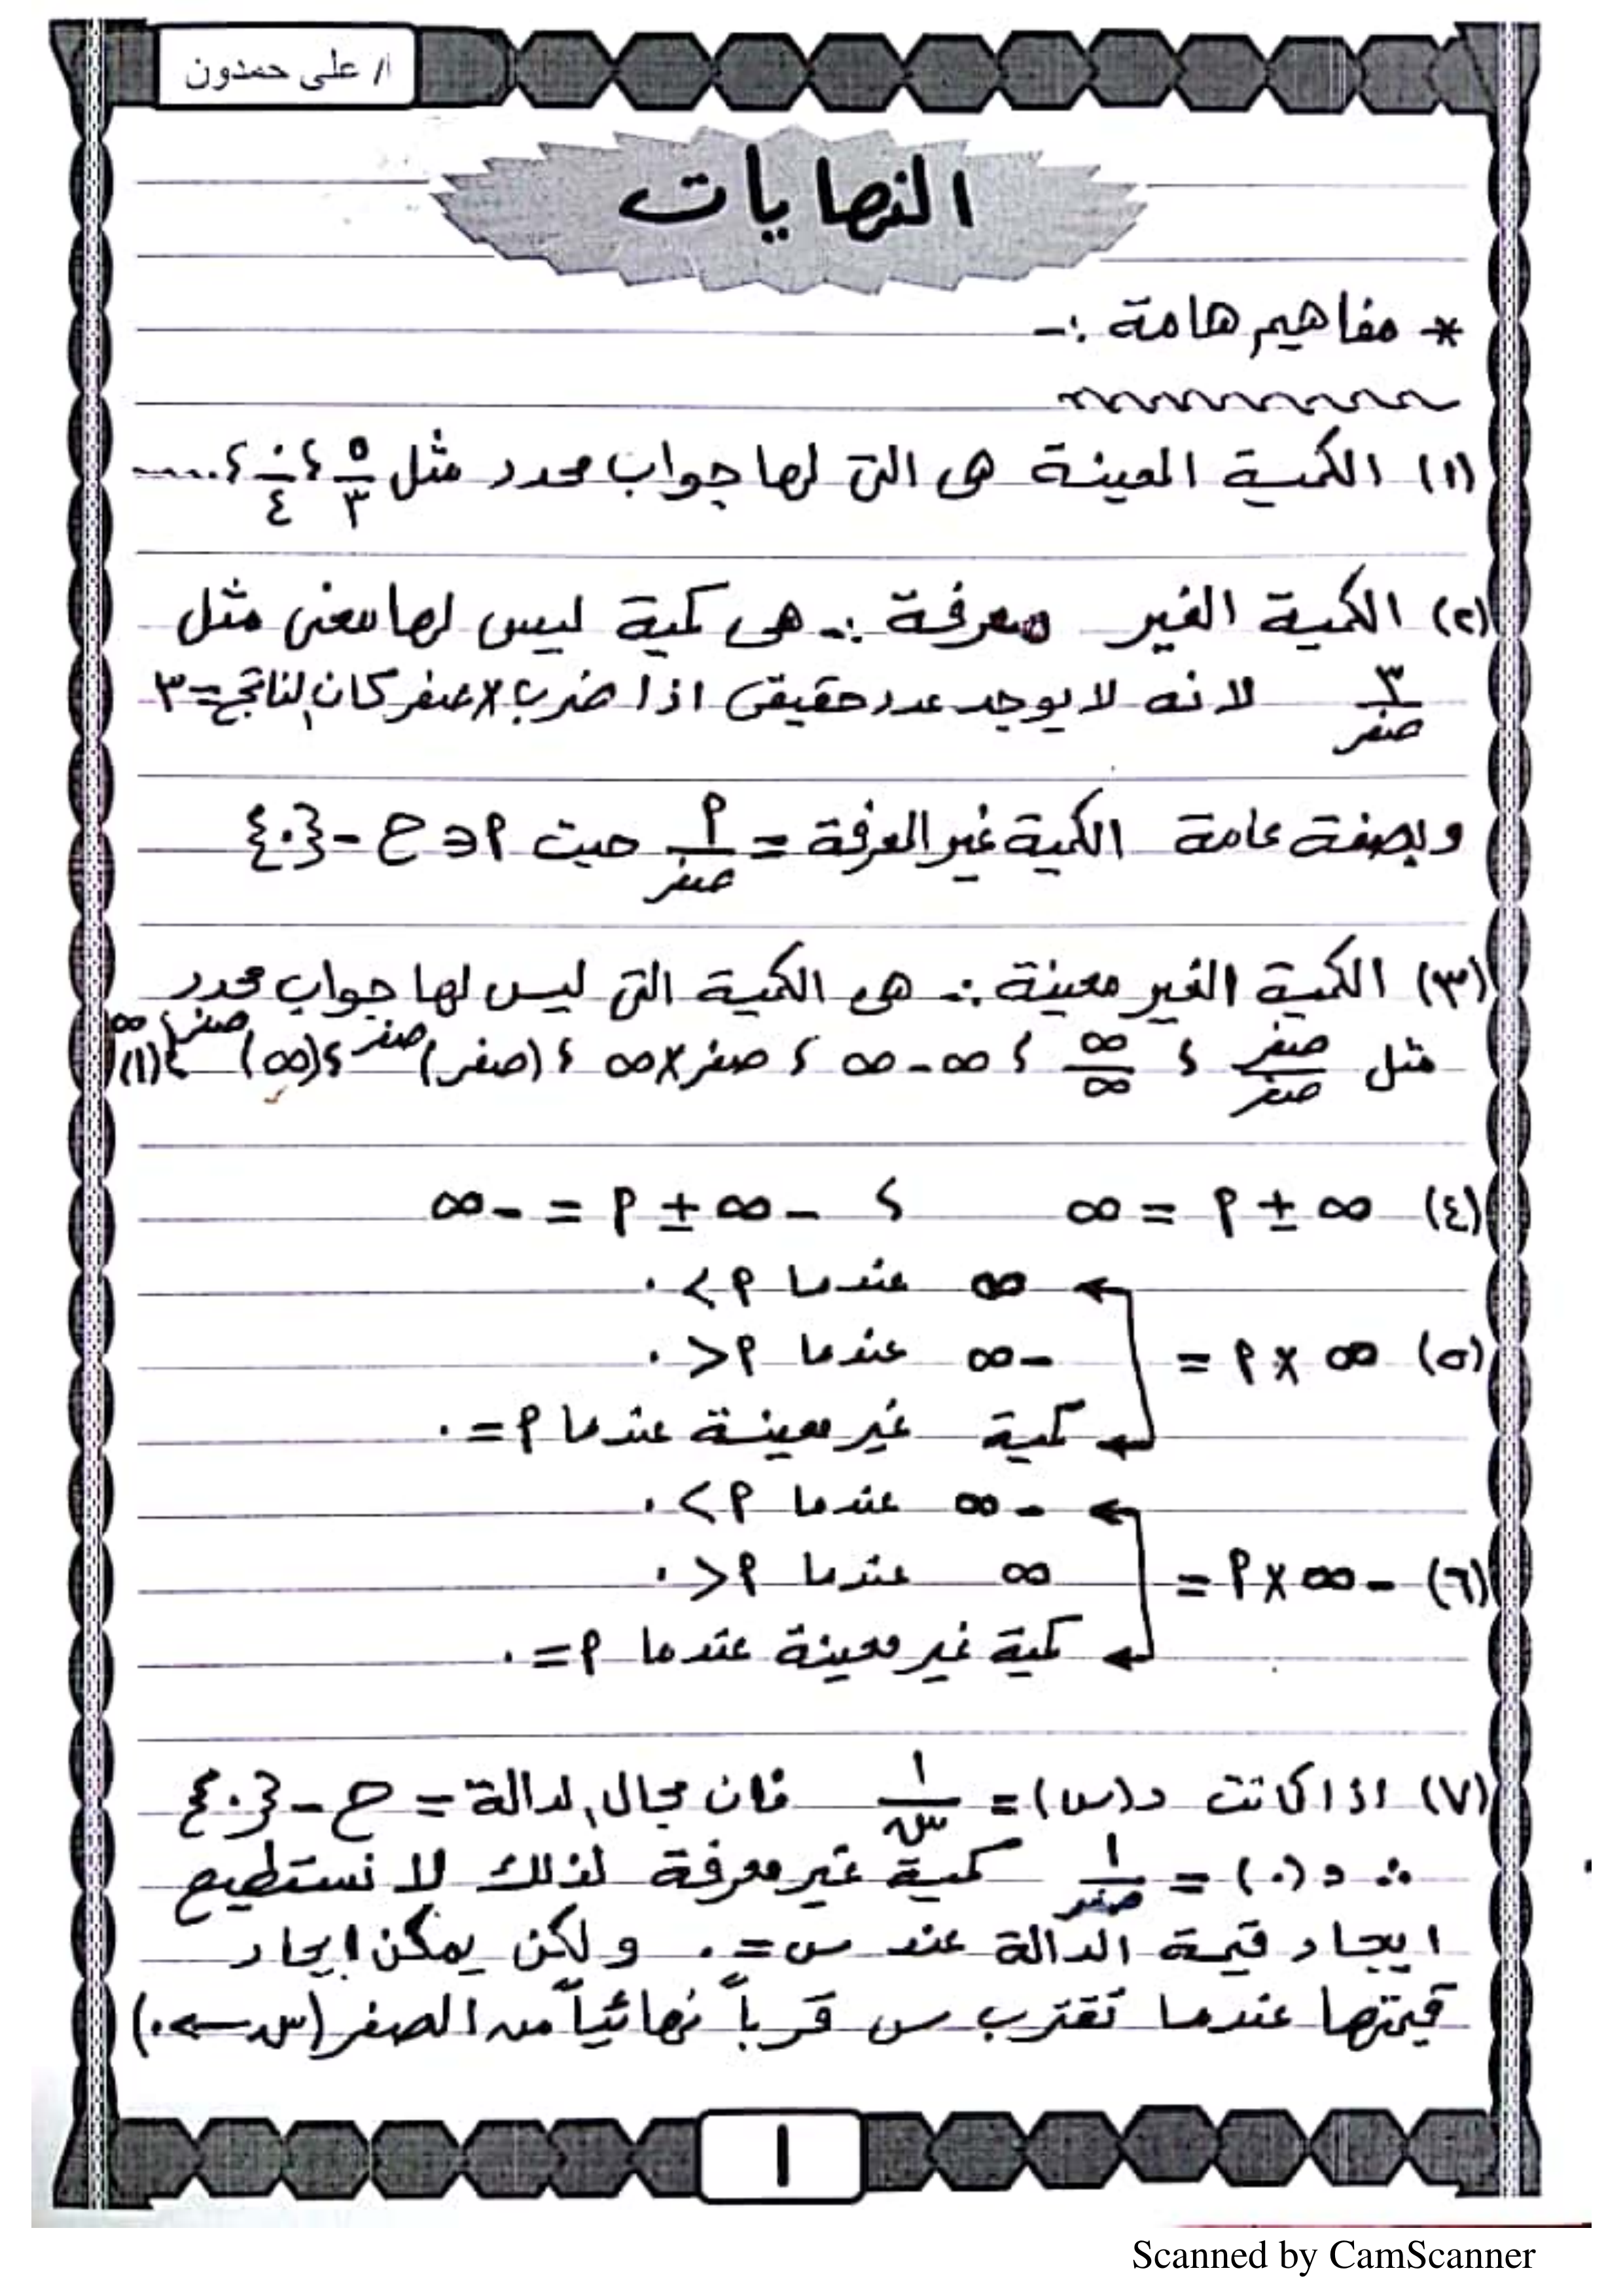 أ/ على حمدون
النهايات
* مفاهيم هامة :-
(١) الكمية المعينة هى التى لها جواب محدد مثل ٥/٣ ، ٠/٤ ، .....
(٢) الكمية الغير معرفة :- هى كمية ليس لها معنى مثل
٣/صفر لانه لا يوجد عدد حقيقى اذا ضرب × صفر كان الناتج = ٣
وبصفة عامة الكمية غير المعرفة = ٩/صفر حيث ٩ ∈ ح - {٠}
(٣) الكمية الغير معينة :- هى الكمية التى ليس لها جواب محدد
مثل صفر/صفر ، ∞/∞ ، ∞ - ∞ ، صفر × ∞ ، (صفر)^صفر ، (∞)^صفر ، (١)^∞
(٤) ∞ ± ٩ = ∞ ، - ∞ ± ٩ = - ∞
∞ عندما ٩ > ٠
(٥) ∞ × ٩ = - ∞ عندما ٩ < ٠
كمية غير معينة عندما ٩ = ٠
- ∞ عندما ٩ > ٠
(٦) - ∞ × ٩ = ∞ عندما ٩ < ٠
كمية غير معينة عندما ٩ = ٠
(٧) اذا كانت د(س) = ١/س فان مجال الدالة = ح - {٠}
∴ د(٠) = ١/صفر كمية غير معرفة لذلك لا نستطيع
ايجاد قيمة الدالة عند س = ٠ ولكن يمكن ايجاد
قيمتها عندما تقترب س قرباً نهائياً من الصفر (س ← ٠)
١
Scanned by CamScanner